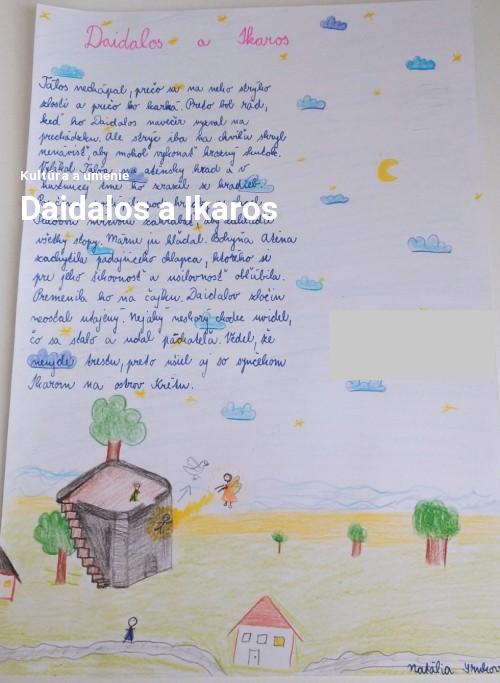 Daidalos a Ikaros
Tálos nechápal, prečo sa na neho strýko
zlostí a prečo ho karhá. Preto bol rád,
keď ho Daidalos navečer vyzval na
prechádzku. Ale strýc iba na chvíľu skryl
nenávisť, aby mohol vykonať hrozný skutok.
Vylákal Tálosa na aténsky hrad a v
hustnúcej tme ho zrazil z hradieb.
Kultúra a umenie
Daidalos a Ikaros
všetky stopy. Márne ju hľadal. Bohyňa Aténa
zachytila padajúceho chlapca, ktorého si
pre jeho šikovnosť a usilovnosť obľúbila.
Premenila ho na čajku. Daidalov zločin
neostal utajený. Nejaký neskorý chodec uvidel,
čo sa stalo a udal páchateľa. Vedel, že
neujde trestu, preto ušiel aj so synčekom
Ikarom na ostrov Krétu.
Natália